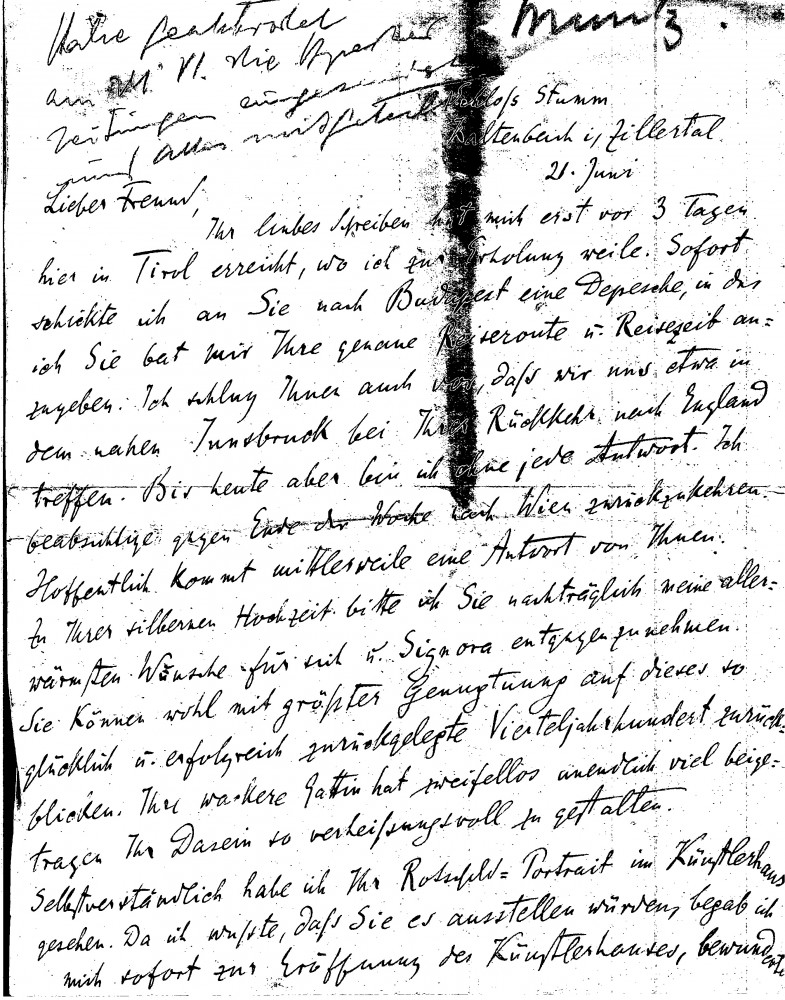 Münz.
Habe geantwortet
am
Zeitungen eingesendet
und alles mitgeteilt
Schloss Stumm
Kaltenbach i, Zillertal
21. Juni
Lieber Freund,
Ihr liebes Schreiben hat mich erst vor 3 Tagen
hier in Tirol erreicht, wo ich zur Erholung weile. Sofort
schickte ich an Sie nach Budapest eine Depesche, in der
ich Sie bat mir Ihre genaue Reiseroute u. Reisezeit an=
zugeben. Ich schlug Ihnen auch vor, daſs wir uns etwa in
dem nahen Innsbruck bei Ihrer Rückkehr nach England
treffen. Bis heute aber bin ich ohne jede Antwort. Ich
beabsichtige gegen Ende der Woche nach Wien zurückzukehren.
Hoffentlich kommt mittlerweile eine Antwort von Ihnen.
Zu Ihrer silbernen Hochzeit bitte ich Sie nachträglich meine aller=
wärmsten Wünsche für sich u. Signora entgegenzunehmen.
Sie können wohl mit größter Genugtuung auf dieses so
glücklich u. erfolgreich zurückgelegte Vierteljahrhundert zurück=
blicken. Ihre wackere Gattin hat zweifellos unendlich viel beige=
tragen Ihr Dasein so verheißungsvoll zu gestalten.
Selbstverständlich habe ich Ihr Portrait im Künstlerhaus
gesehen. Da ich wußte, daſs Sie es ausstellen würden, begab ich
mich sofort zur Eröffnung des Künstlerhauses, bewunderte